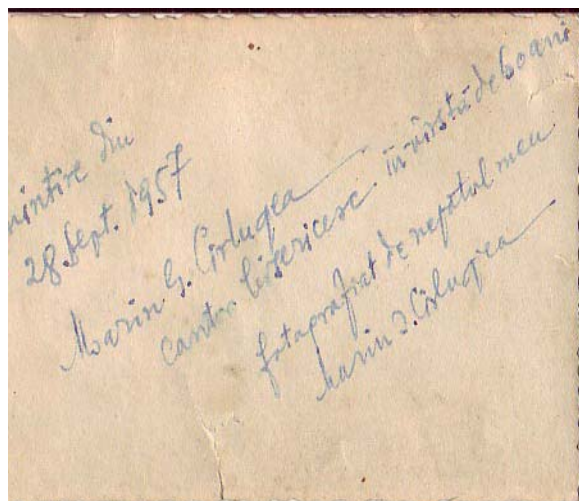 mintire din
28 Sept. 1957
Marin G. Cîrlugea
cantor bisericesc în vîrstă de 60 ani
fotografiat de nepotul meu
Marin I. Cîrlugea